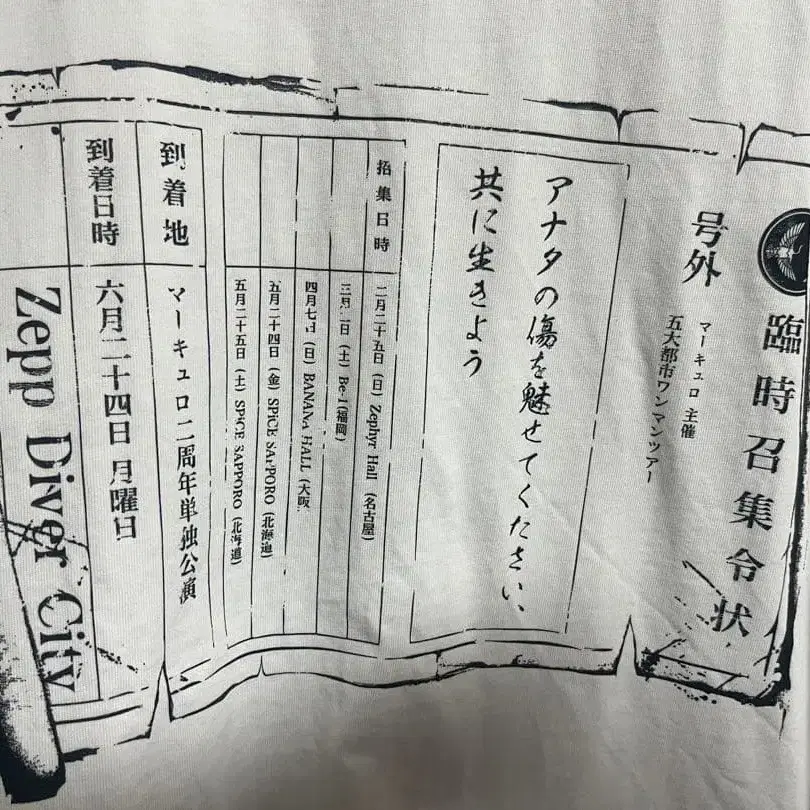 臨時召集令状
号外
マーキュロ 主催
五大都市ワンマンツアー
アナタの傷を魅せてください、
共に生きよう
招集日時
二月二十五日（日）Zephyr Hall（名古屋）
三月二日（土）Be-1（福岡）
四月七日（日）BANANA HALL（大阪）
五月二十四日（金）SPiCE SAPPORO（北海道）
五月二十五日（土）SPiCE SAPPORO（北海道）
到着地
マーキュロ二周年単独公演
到着日時
六月二十四日 月曜日
Zepp Diver City